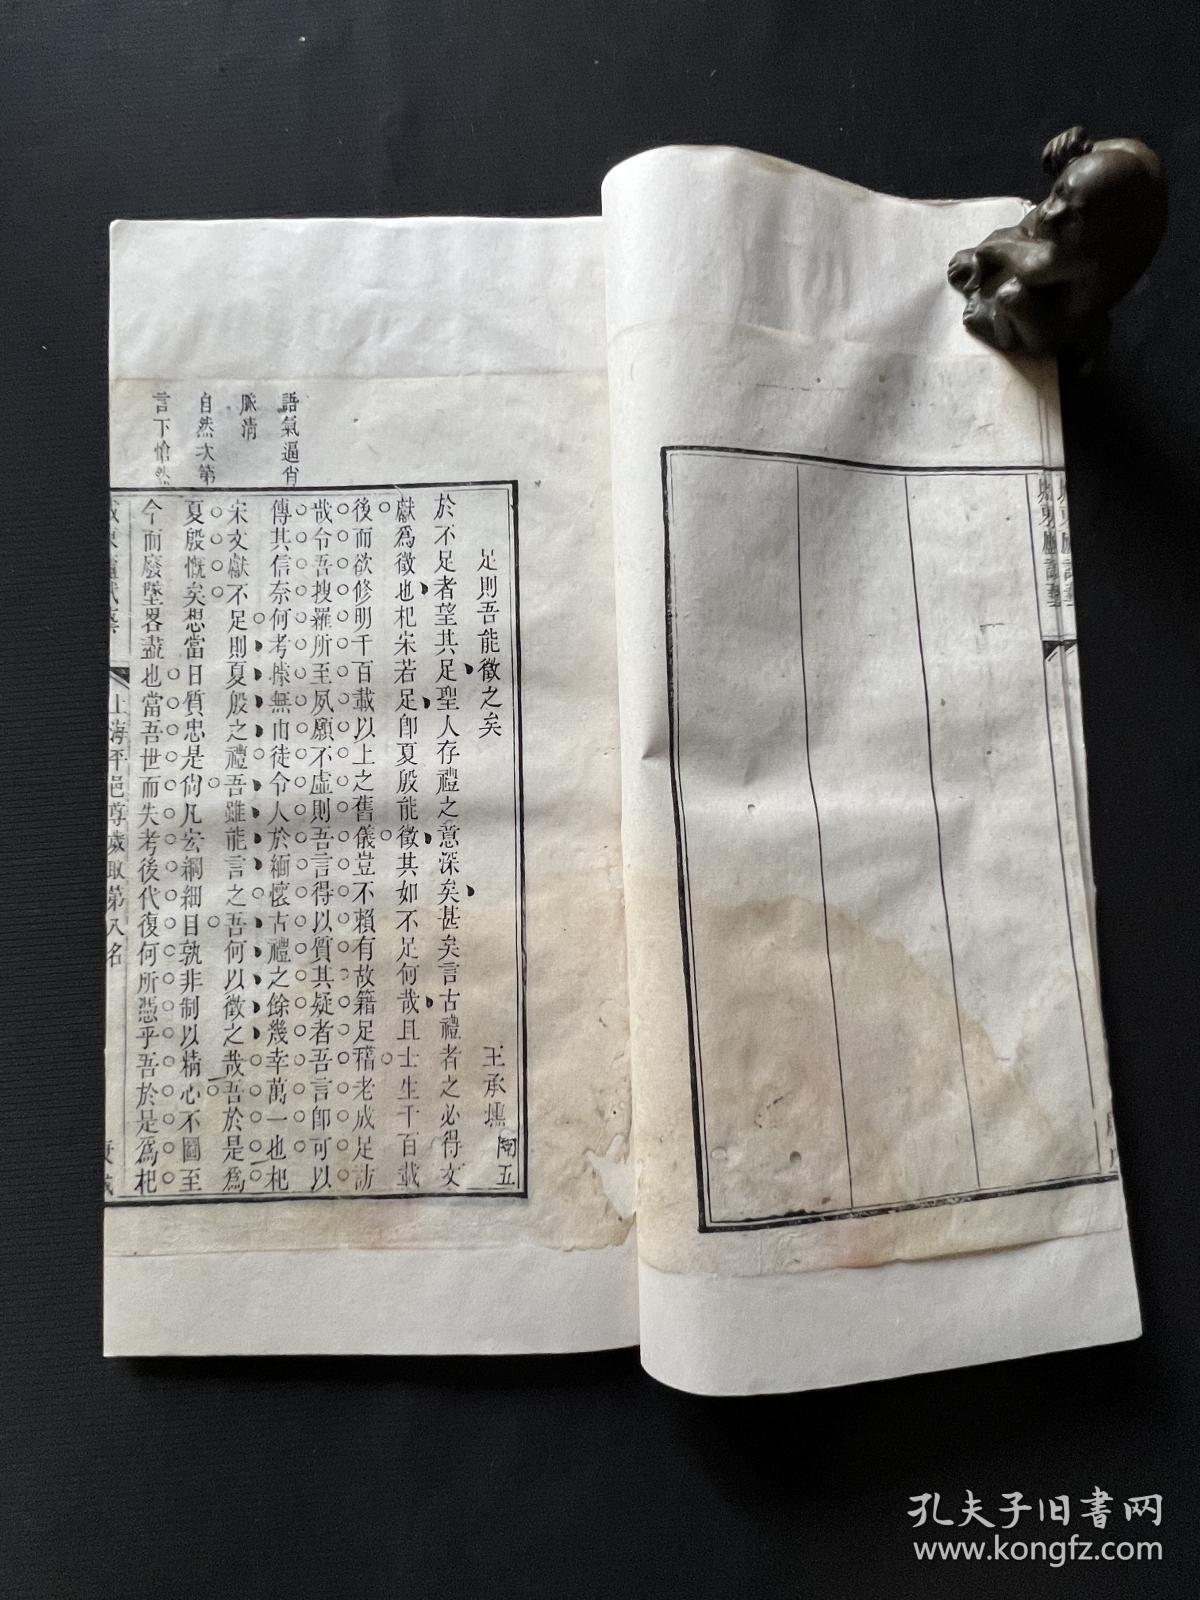 足則吾能徵之矣
王承壎
五
於不足者望其足聖人存禮之意深矣甚矣言古禮者之必得文
獻爲徵也杞宋若足卽夏殷能徵其如不足何哉且士生千百載
後而欲修明千百載以上之舊儀豈不賴有故籍足稽老成足訪
哉令吾搜羅所至夙願不虛則吾言得以質其疑者吾言卽可以
傳其信奈何考據無由徒令人於緬懷古禮之餘幾幸萬一也杞
宋文獻不足則夏殷之禮吾雖能言之吾何以徵之哉吾於是爲
夏殷慨矣想當日質忠是尙凡宏綱細目孰非制以精心不圖至
今而廢墜畧盡也當吾世而失考後代復何所憑乎吾於是爲杞
語氣逼肖
脈清
自然次第
言下愴然
上海平邑尊歲取第八名
孔夫子旧书网
www.kongfz.com